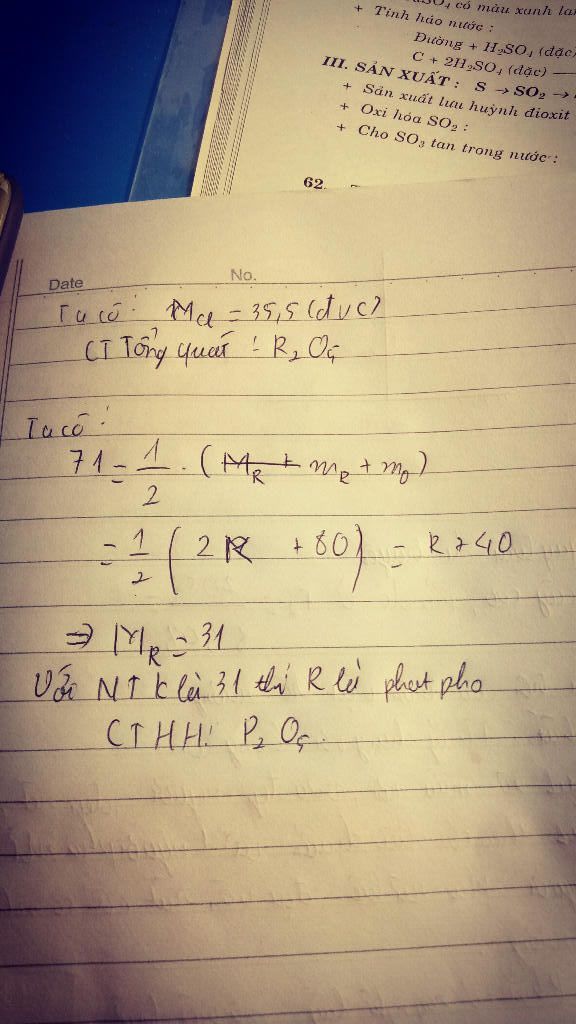 SO₄ có màu xanh lam
+ Tính háo nước :
Đường + H₂SO₄ (đặc)
C + 2H₂SO₄ (đặc) —
III. SẢN XUẤT : S → SO₂ →
+ Sản xuất lưu huỳnh đioxit
+ Oxi hóa SO₂ :
+ Cho SO₃ tan trong nước :
62
Date No.
Ta có : M_Cl = 35,5 (đvC)
CT Tổng quát : R₂O₅
Ta có :
71 = 1/2 . (M_R + m_R + m_O)
= 1/2 (2R + 80) = R + 40
⇒ M_R = 31
Với NTK là 31 thì R là phat pho
CTHH: P₂O₅.